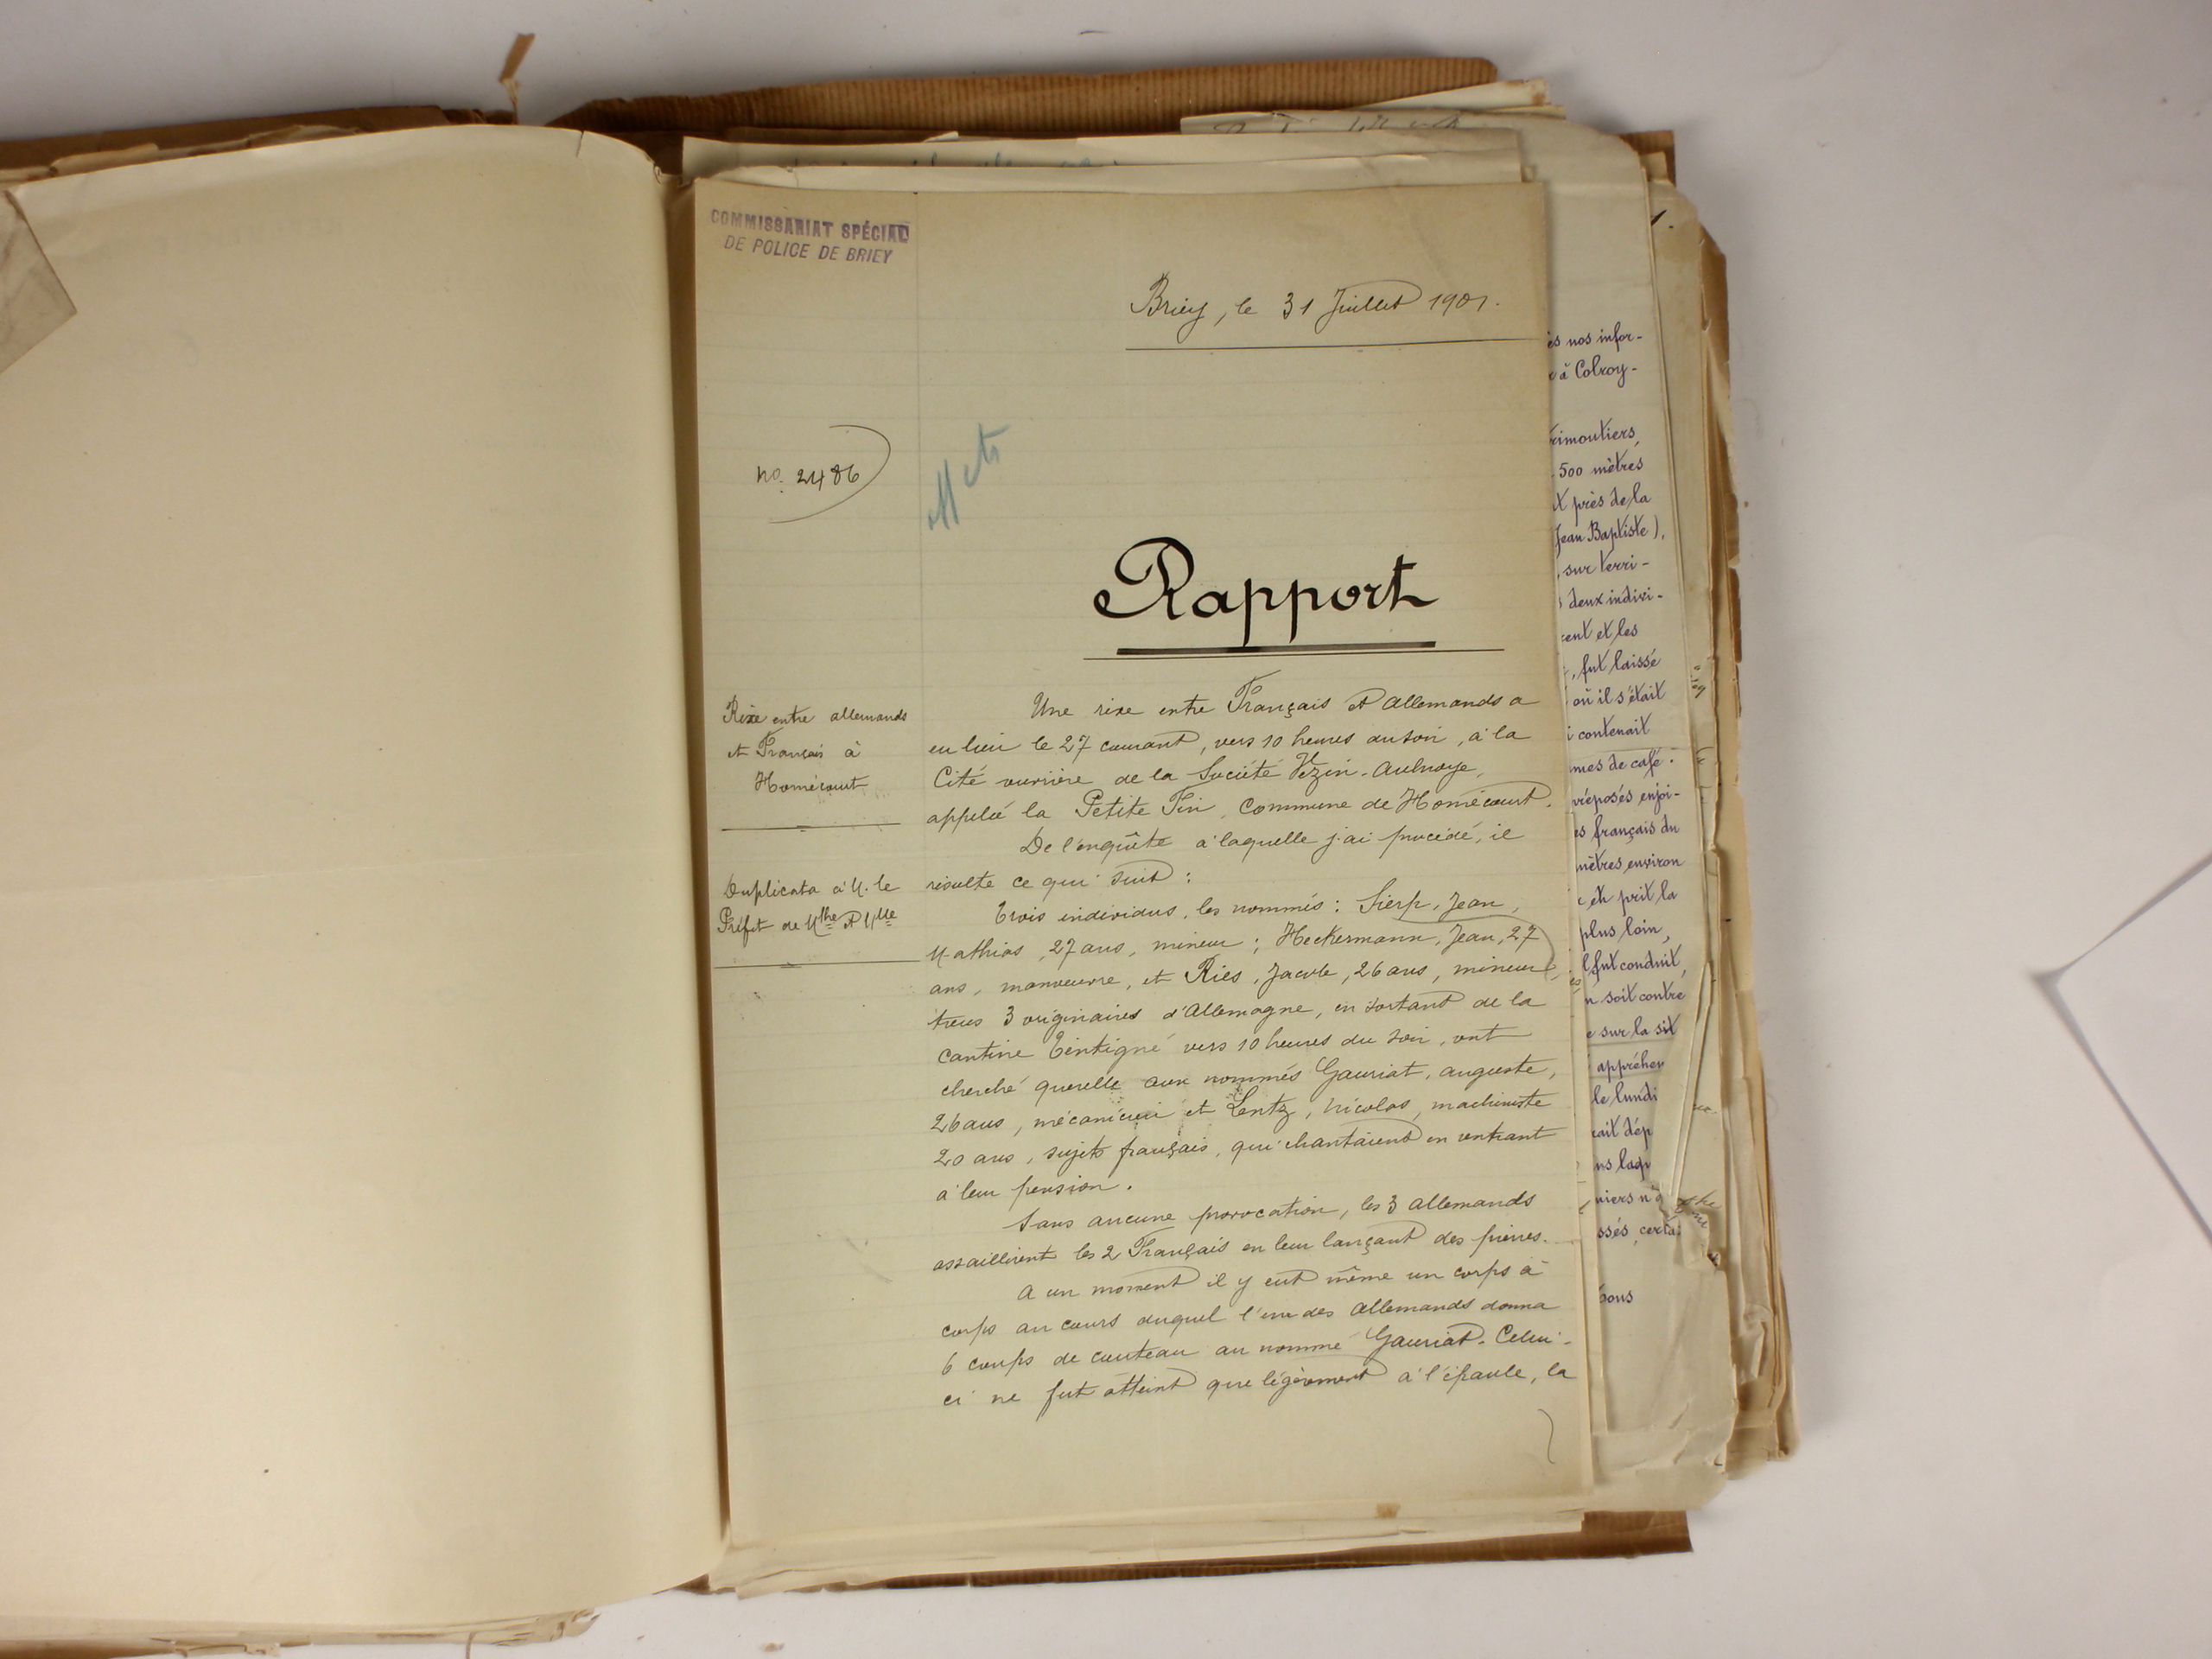 COMMISSARIAT SPÉCIAL
DE POLICE DE BRIEY
Briey, le 31 Juillet 1901.
no. 2486
Rapport
Rixe entre allemands
et Français à
Homécourt
Duplicata à M. le
Préfet de Mthe et Mlle
Une rixe entre Français et Allemands a
eu lieu le 27 courant, vers 10 heures du soir, à la
Cité ouvrière de la Société Vezin-Aulnoye,
appelée la Petite Fin, Commune de Homécourt.
De l'enquête à laquelle j'ai procédé, il
résulte ce qui suit :
Trois individus, les nommés : Sierp, Jean,
Mathias, 27 ans, mineur ; Heckermann, Jean, 27
ans, manoeuvre, et Ries, Jacob, 26 ans, mineur,
tous 3 originaires d'Allemagne, en sortant de la
cantine Tintigné vers 10 heures du soir, ont
cherché querelle aux nommés Gauriat, auguste,
26 ans, mécanicien et Lentz, Nicolas, machiniste
20 ans, sujets français, qui chantaient en rentrant
à leur pension.
Sans aucune provocation, les 3 allemands
assaillirent les 2 Français en leur lançant des pierres.
A un moment il y eut même un corps à
corps au cours duquel l'un des Allemands donna
6 coups de couteau au nommé Gauriat. Celui-
ci ne fut atteint que légèrement à l'épaule, la
és nos infor-
à Colroy-
rimoutiers,
500 mètres
près de la
Jean Baptiste),
, sur terri-
deux indivi-
ent et les
, fut laissé
où il s'était
contenait
mes de café.
réposés enjoi-
es français du
mètres environ
et prit la
plus loin,
fut conduit,
n soit contre
e sur la sit
appréhen
le lundi
rait dép
ns laqu
niers n'
ssés, certai